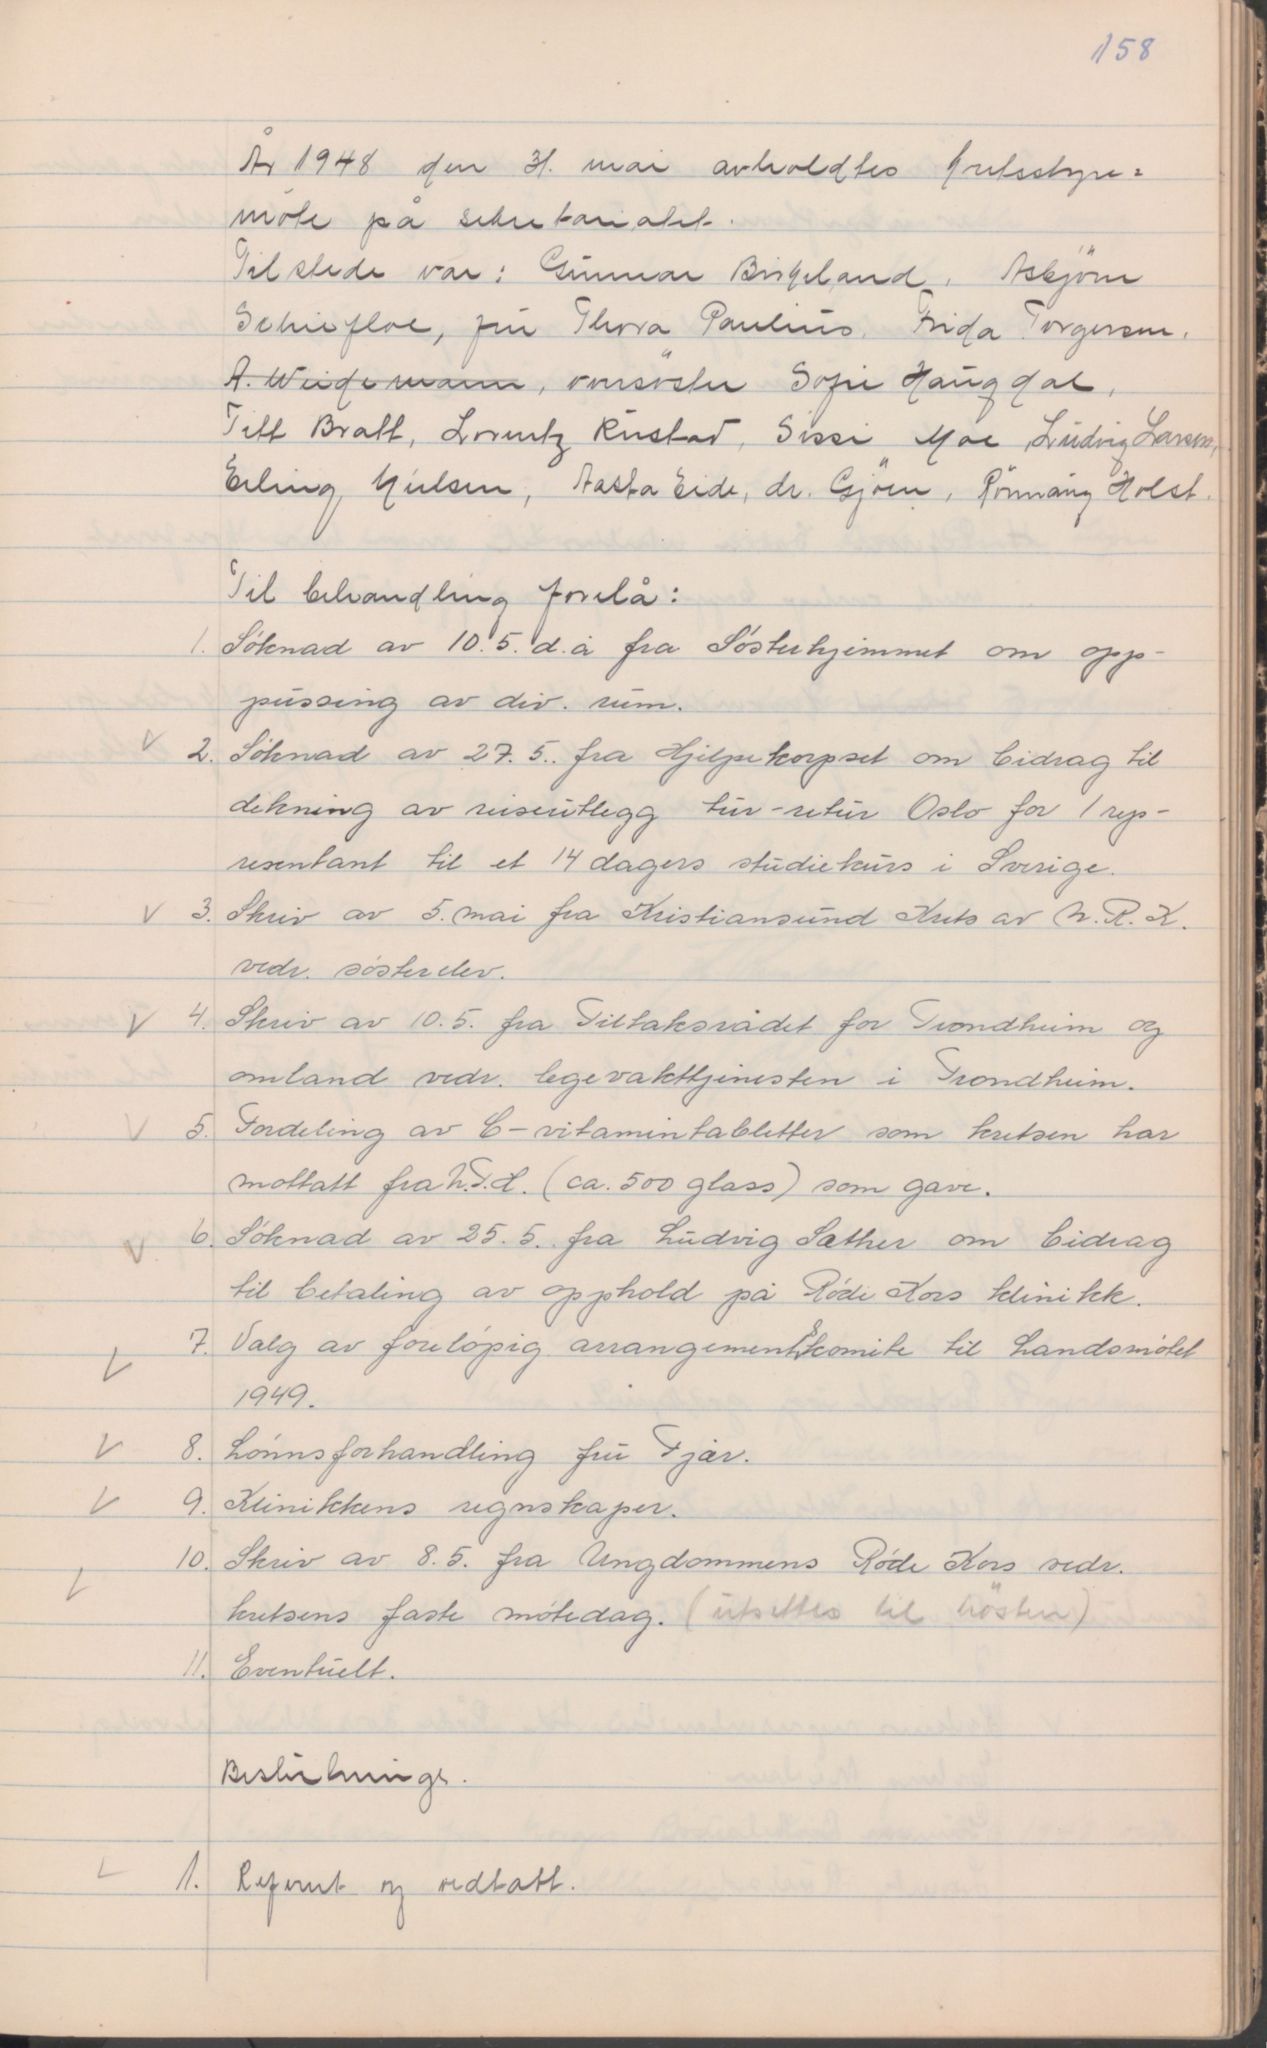 158
År 1948 den 31. mai avholdtes kretsstyre=
møte på sekretariatet.
Tilstede var: Gunnar Birkeland, Asbjörn
Schiefloe, fru Thora Paulius, Frida Torgersen,
A. Weidemann, oversöster Sofie Haugdal,
Titt Bratt, Lorentz Rustad, Sissi Moe, Ludvig Larsen,
Erling Nielsen, Aasta Eide, dr. Gjöen, Rönnaug Holst.
Til behandling forelå:
1. Søknad av 10.5. d.å fra Søsterhjemmet om opp-
pussing av div. rum.
2. Søknad av 27.5. fra Hjelpekorpset om bidrag til
dekning av reiseutlegg tur-retur Oslo for 1 rep-
resentant til et 14 dagers studiekurs i Sverige.
3. Skriv av 5. mai fra Kristiansund Krets av N.R.K.
vedr. søsterelev.
4. Skriv av 10.5. fra Tiltaksrådet for Trondheim og
omland vedr. legevakttjenesten i Trondheim.
5. Fordeling av C-vitamintabletter som kretsen har
mottatt fra N.T.H. (ca. 500 glass) som gave.
6. Søknad av 25.5. fra Ludvig Sæther om bidrag
til betaling av opphold på Røde Kors klinikk.
7. Valg av foreløpig arrangementskomite til Landsmøtet
1949.
8. Lønnsforhandling fru Fjær.
9. Klinikkens regnskaper.
10. Skriv av 8.5. fra Ungdommens Røde Kors vedr.
kretsens faste møtedag. (utsettes til hösten)
11. Eventuelt.
Beslutninger.
1. Referert og vedtatt.